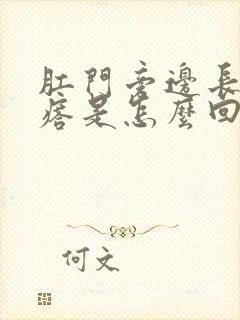 肛門旁邊長
痞是怎麼回
何文